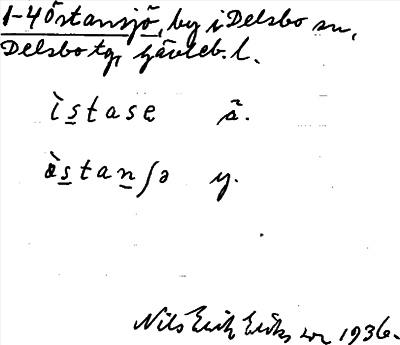 1-4 Östansjö, by i Delsbo sn,
Delsbo tg, Gävleb. l.
ì̀s̲tase ä.
ö̀s̲tan̲ʃə y.
Nils Erik Eriksson 1936.